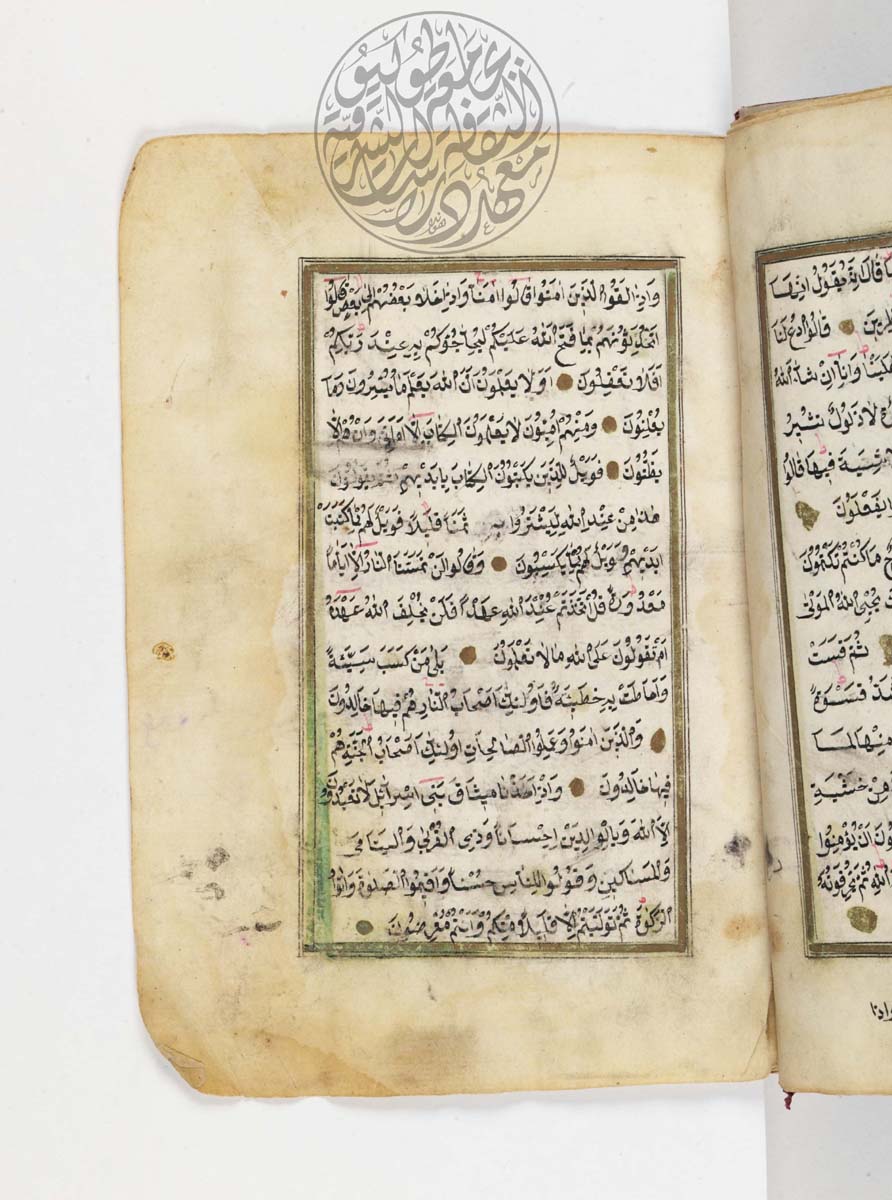 وَإِذَا لَقُوا الَّذِينَ اٰمَنُوا قَالُوا اٰمَنَّا وَإِذَا خَلَا بَعْضُهُمْ إِلَى بَعْضٍ قَالُوا
اَتُحَدِّثُونَهُمْ بِمَا فَتَحَ اللّٰهُ عَلَيْكُمْ لِيُحَاجُّوكُمْ بِهِ عِنْدَ رَبِّكُمْ
اَفَلَا تَعْقِلُونَ اَوَلَا يَعْلَمُونَ اَنَّ اللّٰهَ يَعْلَمُ مَا يُسِرُّونَ وَمَا
يُعْلِنُونَ وَمِنْهُمْ اُمِّيُّونَ لَا يَعْلَمُونَ الْكِتَابَ اِلَّا اَمَانِيَّ وَاِنْ هُمْ اِلَّا
يَظُنُّونَ فَوَيْلٌ لِلَّذِينَ يَكْتُبُونَ الْكِتَابَ بِاَيْدِيهِمْ ثُمَّ يَقُولُونَ
هٰذَا مِنْ عِنْدِ اللّٰهِ لِيَشْتَرُوا بِهِ ثَمَنًا قَلِيلًا فَوَيْلٌ لَهُمْ مِمَّا كَتَبَتْ
اَيْدِيهِمْ وَوَيْلٌ لَهُمْ مِمَّا يَكْسِبُونَ وَقَالُوا لَنْ تَمَسَّنَا النَّارُ اِلَّا اَيَّامًا
مَعْدُودَةً قُلْ اَتَّخَذْتُمْ عِنْدَ اللّٰهِ عَهْدًا فَلَنْ يُخْلِفَ اللّٰهُ عَهْدَهُ
اَمْ تَقُولُونَ عَلَى اللّٰهِ مَا لَا تَعْلَمُونَ بَلٰى مَنْ كَسَبَ سَيِّئَةً
وَاَحَاطَتْ بِهِ خَطِيئَتُهُ فَاُولٰئِكَ اَصْحَابُ النَّارِ هُمْ فِيهَا خَالِدُونَ
وَالَّذِينَ اٰمَنُوا وَعَمِلُوا الصَّالِحَاتِ اُولٰئِكَ اَصْحَابُ الْجَنَّةِ هُمْ
فِيهَا خَالِدُونَ وَاِذْ اَخَذْنَا مِيثَاقَ بَنِي اِسْرَائِيلَ لَا تَعْبُدُونَ
اِلَّا اللّٰهَ وَبِالْوَالِدَيْنِ اِحْسَانًا وَذِي الْقُرْبٰى وَالْيَتَامٰى
وَالْمَسَاكِينِ وَقُولُوا لِلنَّاسِ حُسْنًا وَاَقِيمُوا الصَّلٰوةَ وَاٰتُوا
الزَّكٰوةَ ثُمَّ تَوَلَّيْتُمْ اِلَّا قَلِيلًا مِنْكُمْ وَاَنْتُمْ مُعْرِضُونَ
قَالُوا ادْعُ لَنَا
عَلَيْنَا وَاِنَّا اِنْ شَاءَ اللّٰهُ
لَا ذَلُولٌ تُثِيرُ
لَا شِيَةَ فِيهَا قَالُوا
يَفْعَلُونَ
مَا كُنْتُمْ تَكْتُمُونَ
يُحْيِي اللّٰهُ الْمَوْتٰى
ثُمَّ قَسَتْ
قَسْوَةً
مِنْهَا لَمَا
مِنْ خَشْيَةِ
اَنْ يُؤْمِنُوا
اللّٰهِ ثُمَّ يُحَرِّفُونَهُ
واذا
جامعة طوكيو
معهد دراسات الثقافة الشرقية